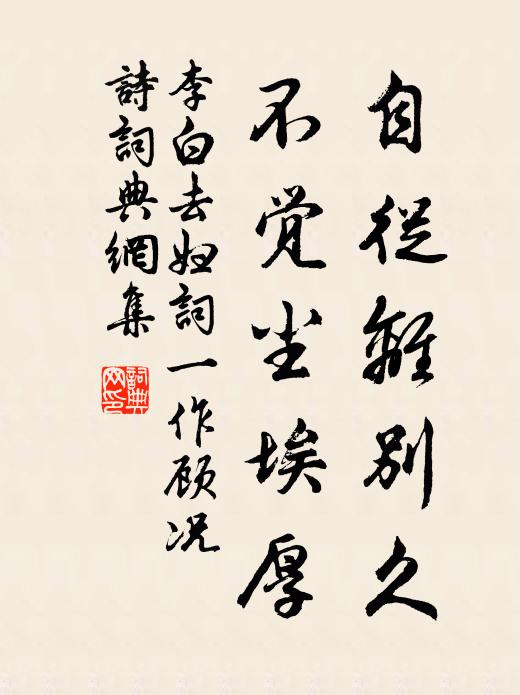 自從離别久
不觉尘埃厚
李白去妇詞一作顾况
詩詞典網集
詞典
网印